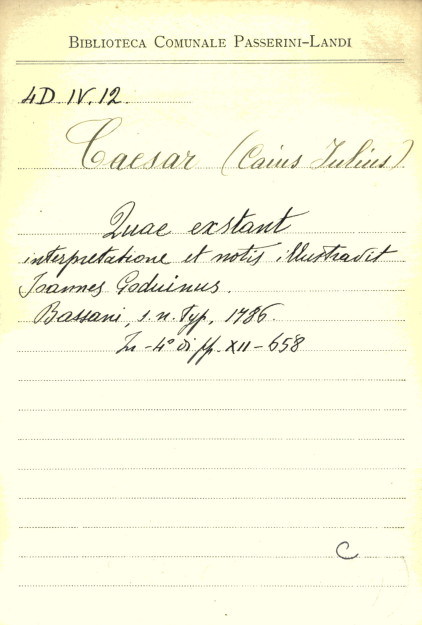 BIBLIOTECA COMUNALE PASSERINI-LANDI
4D IV. 12.
Caesar (Caius Iulius)
Quae exstant
interpretatione et notis illustravit
Joannes Goduinus.
Bassani, s. n. Typ., 1786.
In-4° di pp. XII-658
C